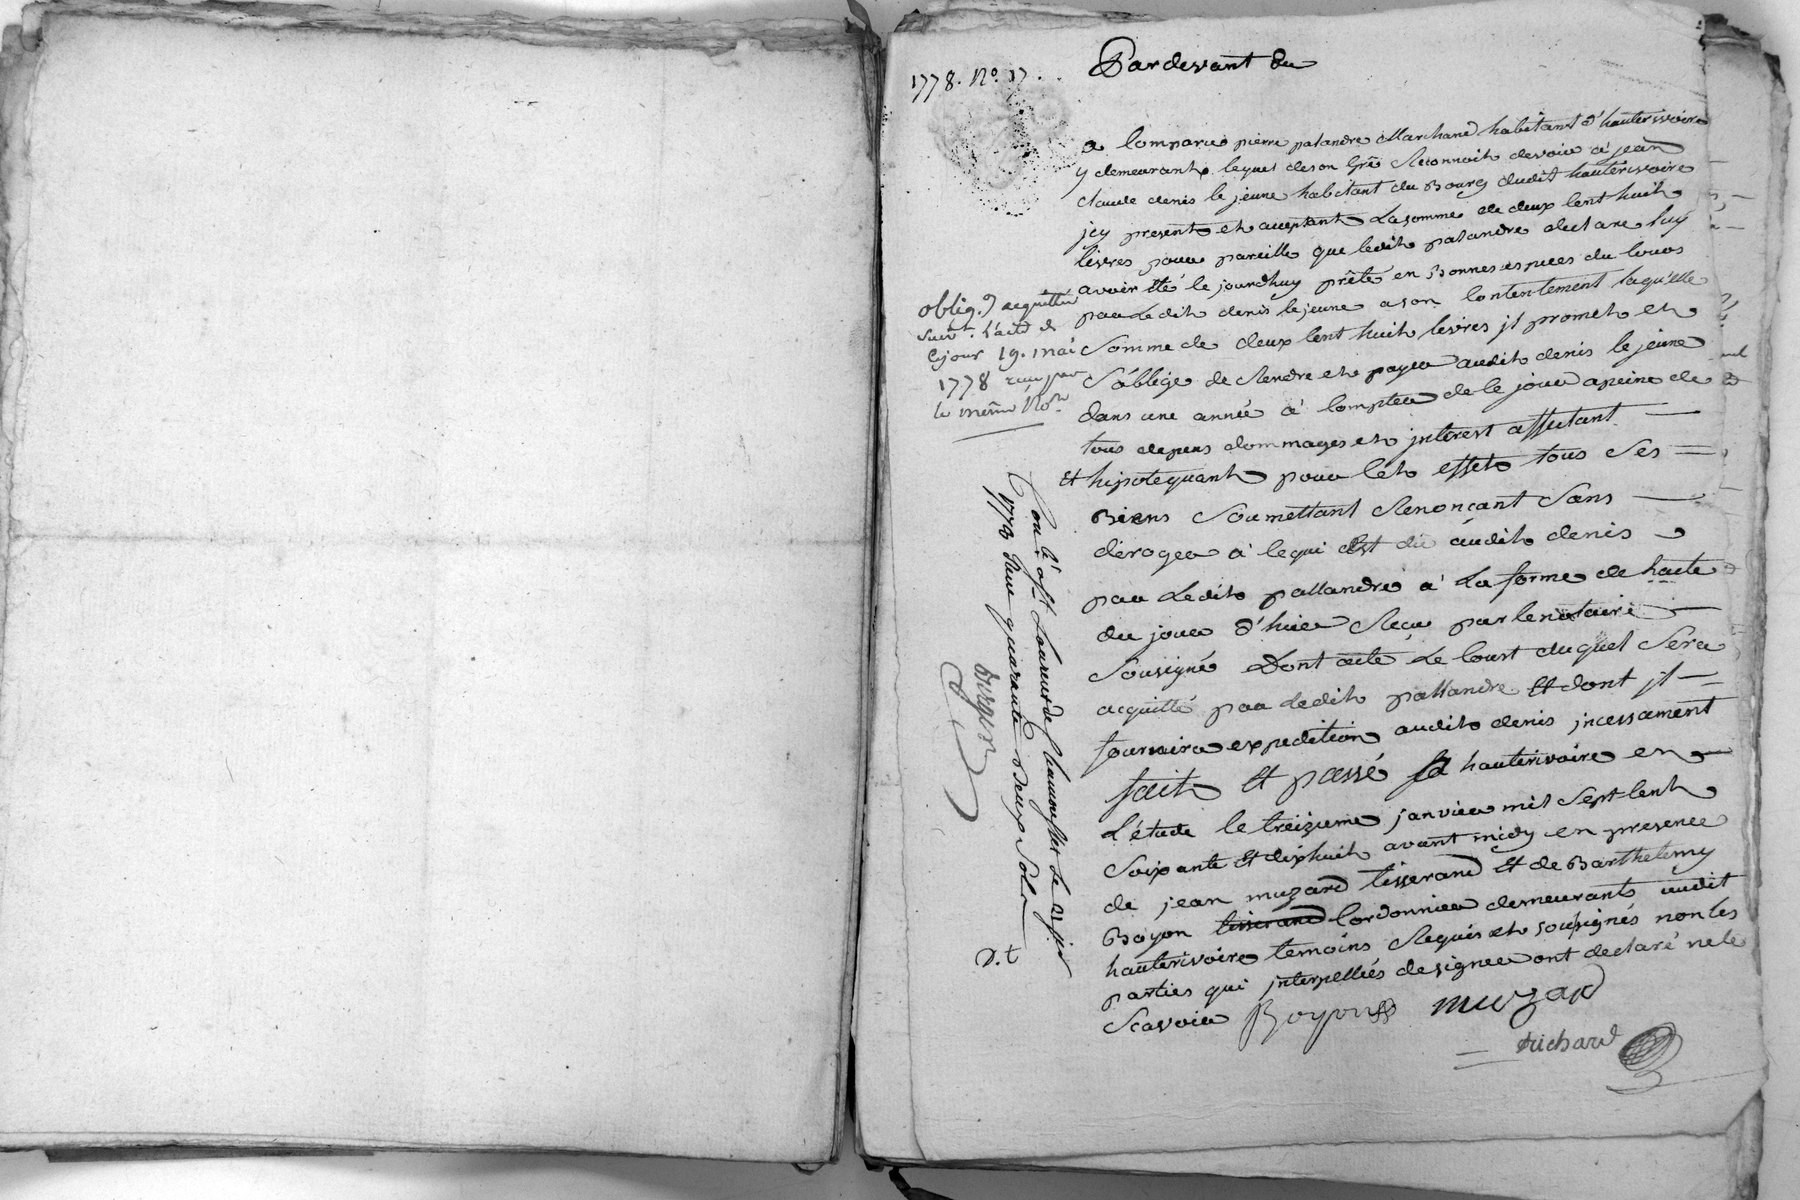 1778. No. 17.
Pardevant &a
a Comparu pierre patandre Marchand habitant d'hauterivoire
y demeurant lequel de son Gré Reconnoit devoir à jean
claude denis le jeune habitant du Bourg dudit hauterivoire
jcy present et acceptant La somme de deux Cent huit
livres pour pareille que ledit patandre declare luy
avoir été le jourdhuy prêté en Bonnes espèces du Cours
par Ledit denis le jeune a son Contentement laquelle
Somme de deux Cent huit livres jl promet et
S'abblige de Rendre et payer audit denis le jeune
dans une année à Compter de Ce jour a peine de
tous depens dommages et jnterest affectant
Et hipotequant pour Cet effet tous Ses
Biens Soumettant Renonçant Sans
déroger à Cequi Est dû audit denis
par Ledit pallandre à La forme de Lacte
du jour d'hier Reçu par le notaire
Sousigné Dont acte Le Cout duquel Sera
acquitté par Ledit pallandre Et dont jl
fournira expedition audit denis jncessament
fait Et passé a hauterivoire en
L'étude le treizieme janvier mil Sept Cent
Soixante Et dixhuit avant midy en presence
de jean muzard tisserand Et de Barthelemy
Boyon tisserand Cordonnier demeurants audit
hauterivoire temoins Requis et sousignés non les
parties qui jnterpellées de signer ont declaré ne le
Scavoir Boyon muzard
Richard
oblig.on acquittée
suiv.t l'acte de
cejour 19. mai
1778 reçu par
le même No.re
Con.lé à St Laurent de Chamousset Le 21 j.er
1778 Reçu quarante deux Sols
D.t